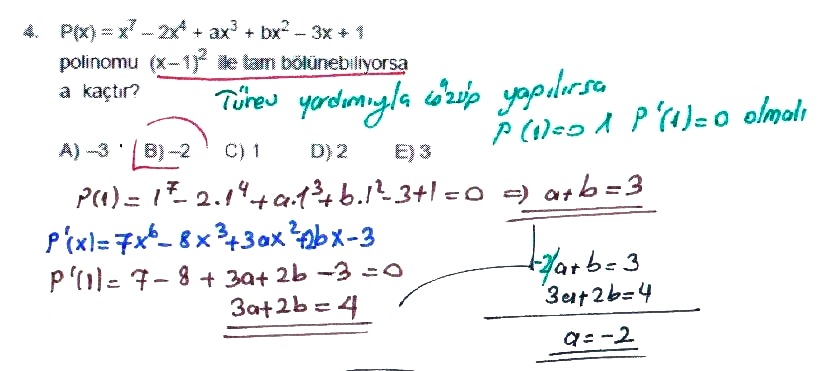 4. P(x) = x⁷ – 2x⁴ + ax³ + bx² – 3x + 1
polinomu (x–1)² ile tam bölünebiliyorsa
a kaçtır?
Türev yardımıyla çözüp yapılırsa
P(1)=0 ∧ P'(1)=0 olmalı
A) –3 B) –2 C) 1 D) 2 E) 3
P(1) = 1⁷ - 2.1⁴ + a.1³ + b.1² - 3 + 1 = 0 ⇒ a+b = 3
P'(x) = 7x⁶ - 8x³ + 3ax² + 2bx - 3
P'(1) = 7 - 8 + 3a + 2b - 3 = 0
3a+2b = 4
-2/ a+b = 3
3a+2b = 4
a = -2